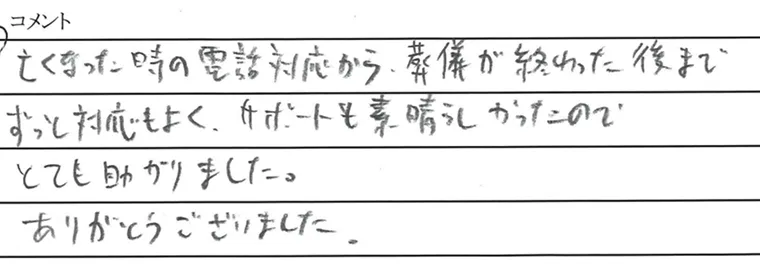 コメント
亡くなった時の電話対応から、葬儀が終わった後まで
ずっと対応もよく、サポートも素晴らしかったので
とても助かりました。
ありがとうございました。